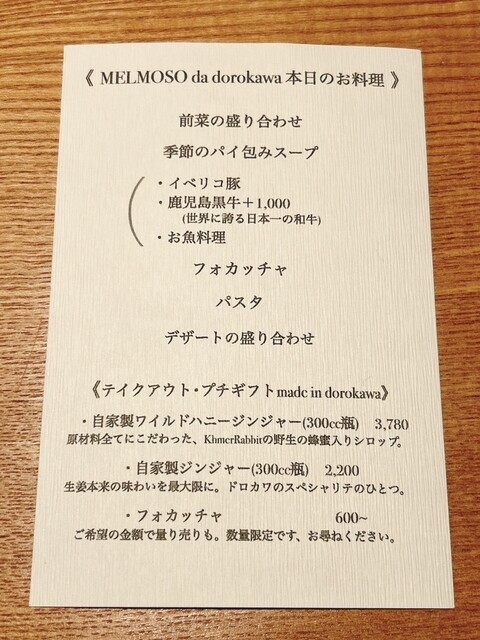 《 MELMOSO da dorokawa 本日のお料理 》
前菜の盛り合わせ
季節のパイ包みスープ
・イベリコ豚
・鹿児島黒牛＋1,000
(世界に誇る日本一の和牛)
・お魚料理
フォカッチャ
パスタ
デザートの盛り合わせ
《テイクアウト・プチギフトmade in dorokawa》
・自家製ワイルドハニージンジャー(300cc瓶) 3,780
原材料全てにこだわった、KhmerRabbitの野生の蜂蜜入りシロップ。
・自家製ジンジャー(300cc瓶) 2,200
生姜本来の味わいを最大限に。ドロカワのスペシャリテのひとつ。
・フォカッチャ 600~
ご希望の金額で量り売りも。数量限定です、お尋ねください。